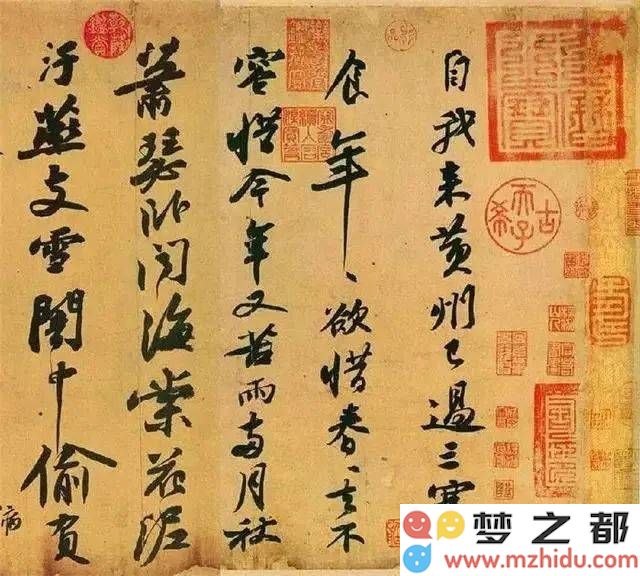 自我来黄州已過三寒
食年、欲惜春、去不
容惜今年又苦雨兩月秋
蕭瑟卧聞海棠花泥
汙燕支雪闇中偷負
病
古希天子
梦之都
www.mzhidu.com